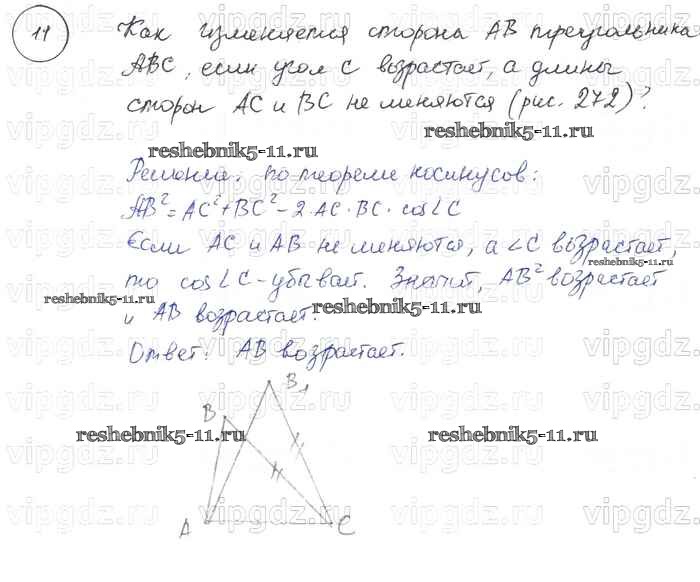 11
Как изменяется сторона AB треугольника
ABC, если угол C возрастает, а длины
сторон AC и BC не меняются (рис. 272)?
reshebnik5-11.ru
reshebnik5-11.ru
Решение. по теореме косинусов:
AB²=AC²+BC²-2·AC·BC·cos∠C
Если AC и AB не меняются, а ∠C возрастает,
reshebnik5-11.ru
то cos∠C-убывает. Значит, AB² возрастает
reshebnik5-11.ru
reshebnik5-11.ru
и AB возрастает.
Ответ: AB возрастает.
B₁
B
reshebnik5-11.ru
reshebnik5-11.ru
A
C
vipgdz.ru